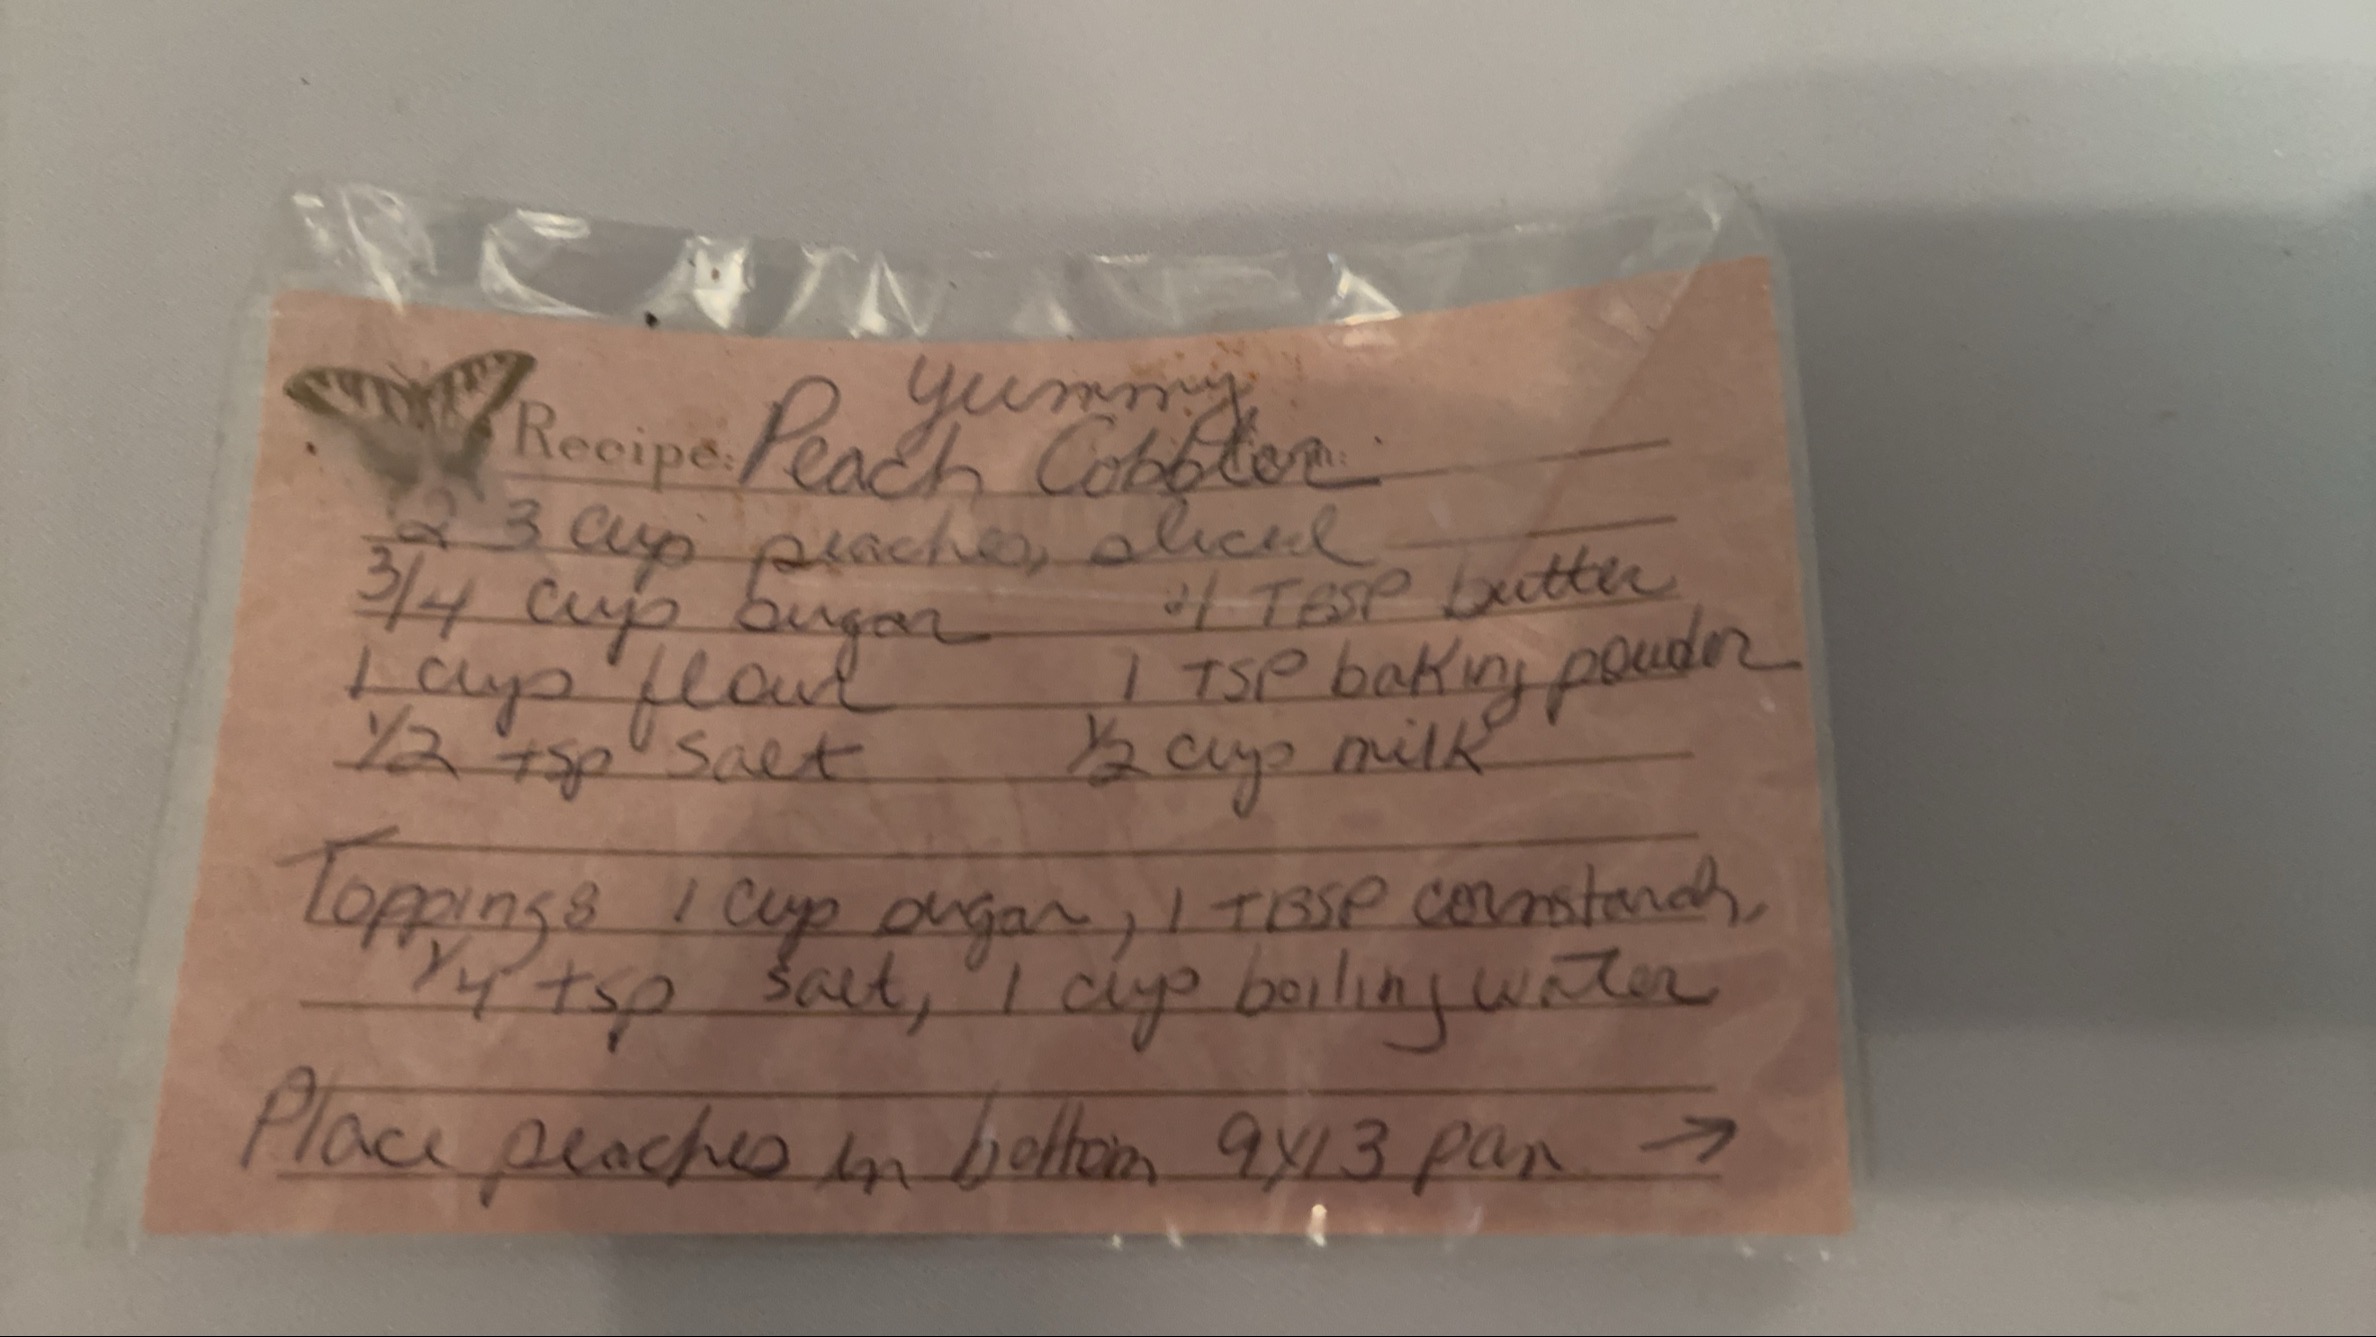 yummy
Recipe: Peach Cobbler
2 3 cup peaches, sliced
3/4 cup sugar 4 TBSP butter
1 cup flour 1 TSP baking powder
1/2 tsp salt 1/2 cup milk
Topping: 1 cup sugar, 1 TBSP cornstarch,
1/4 tsp salt, 1 cup boiling water
Place peaches in bottom 9x13 pan →